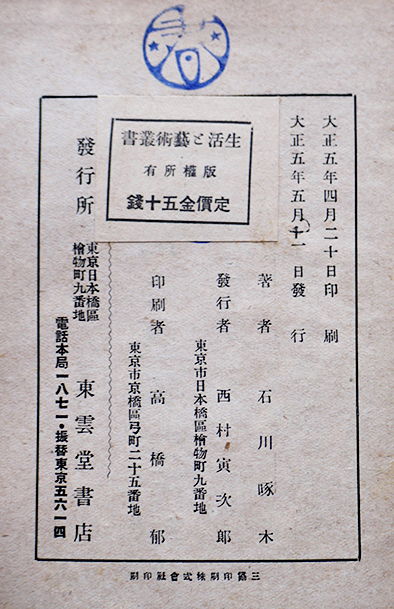 大正五年四月二十日印刷
大正五年五月十一日發行
生活と藝術叢書
版權所有
定價金五十錢
著者 石川啄木
發行者 西村寅次郎
東京市日本橋區檜物町九番地
印刷者 高橋郁
東京市京橋區弓町二十五番地
發行所
東京日本橋區
檜物町九番地
東雲堂書店
電話本局一八七一・振替東京五六一四
三協印刷株式會社印刷